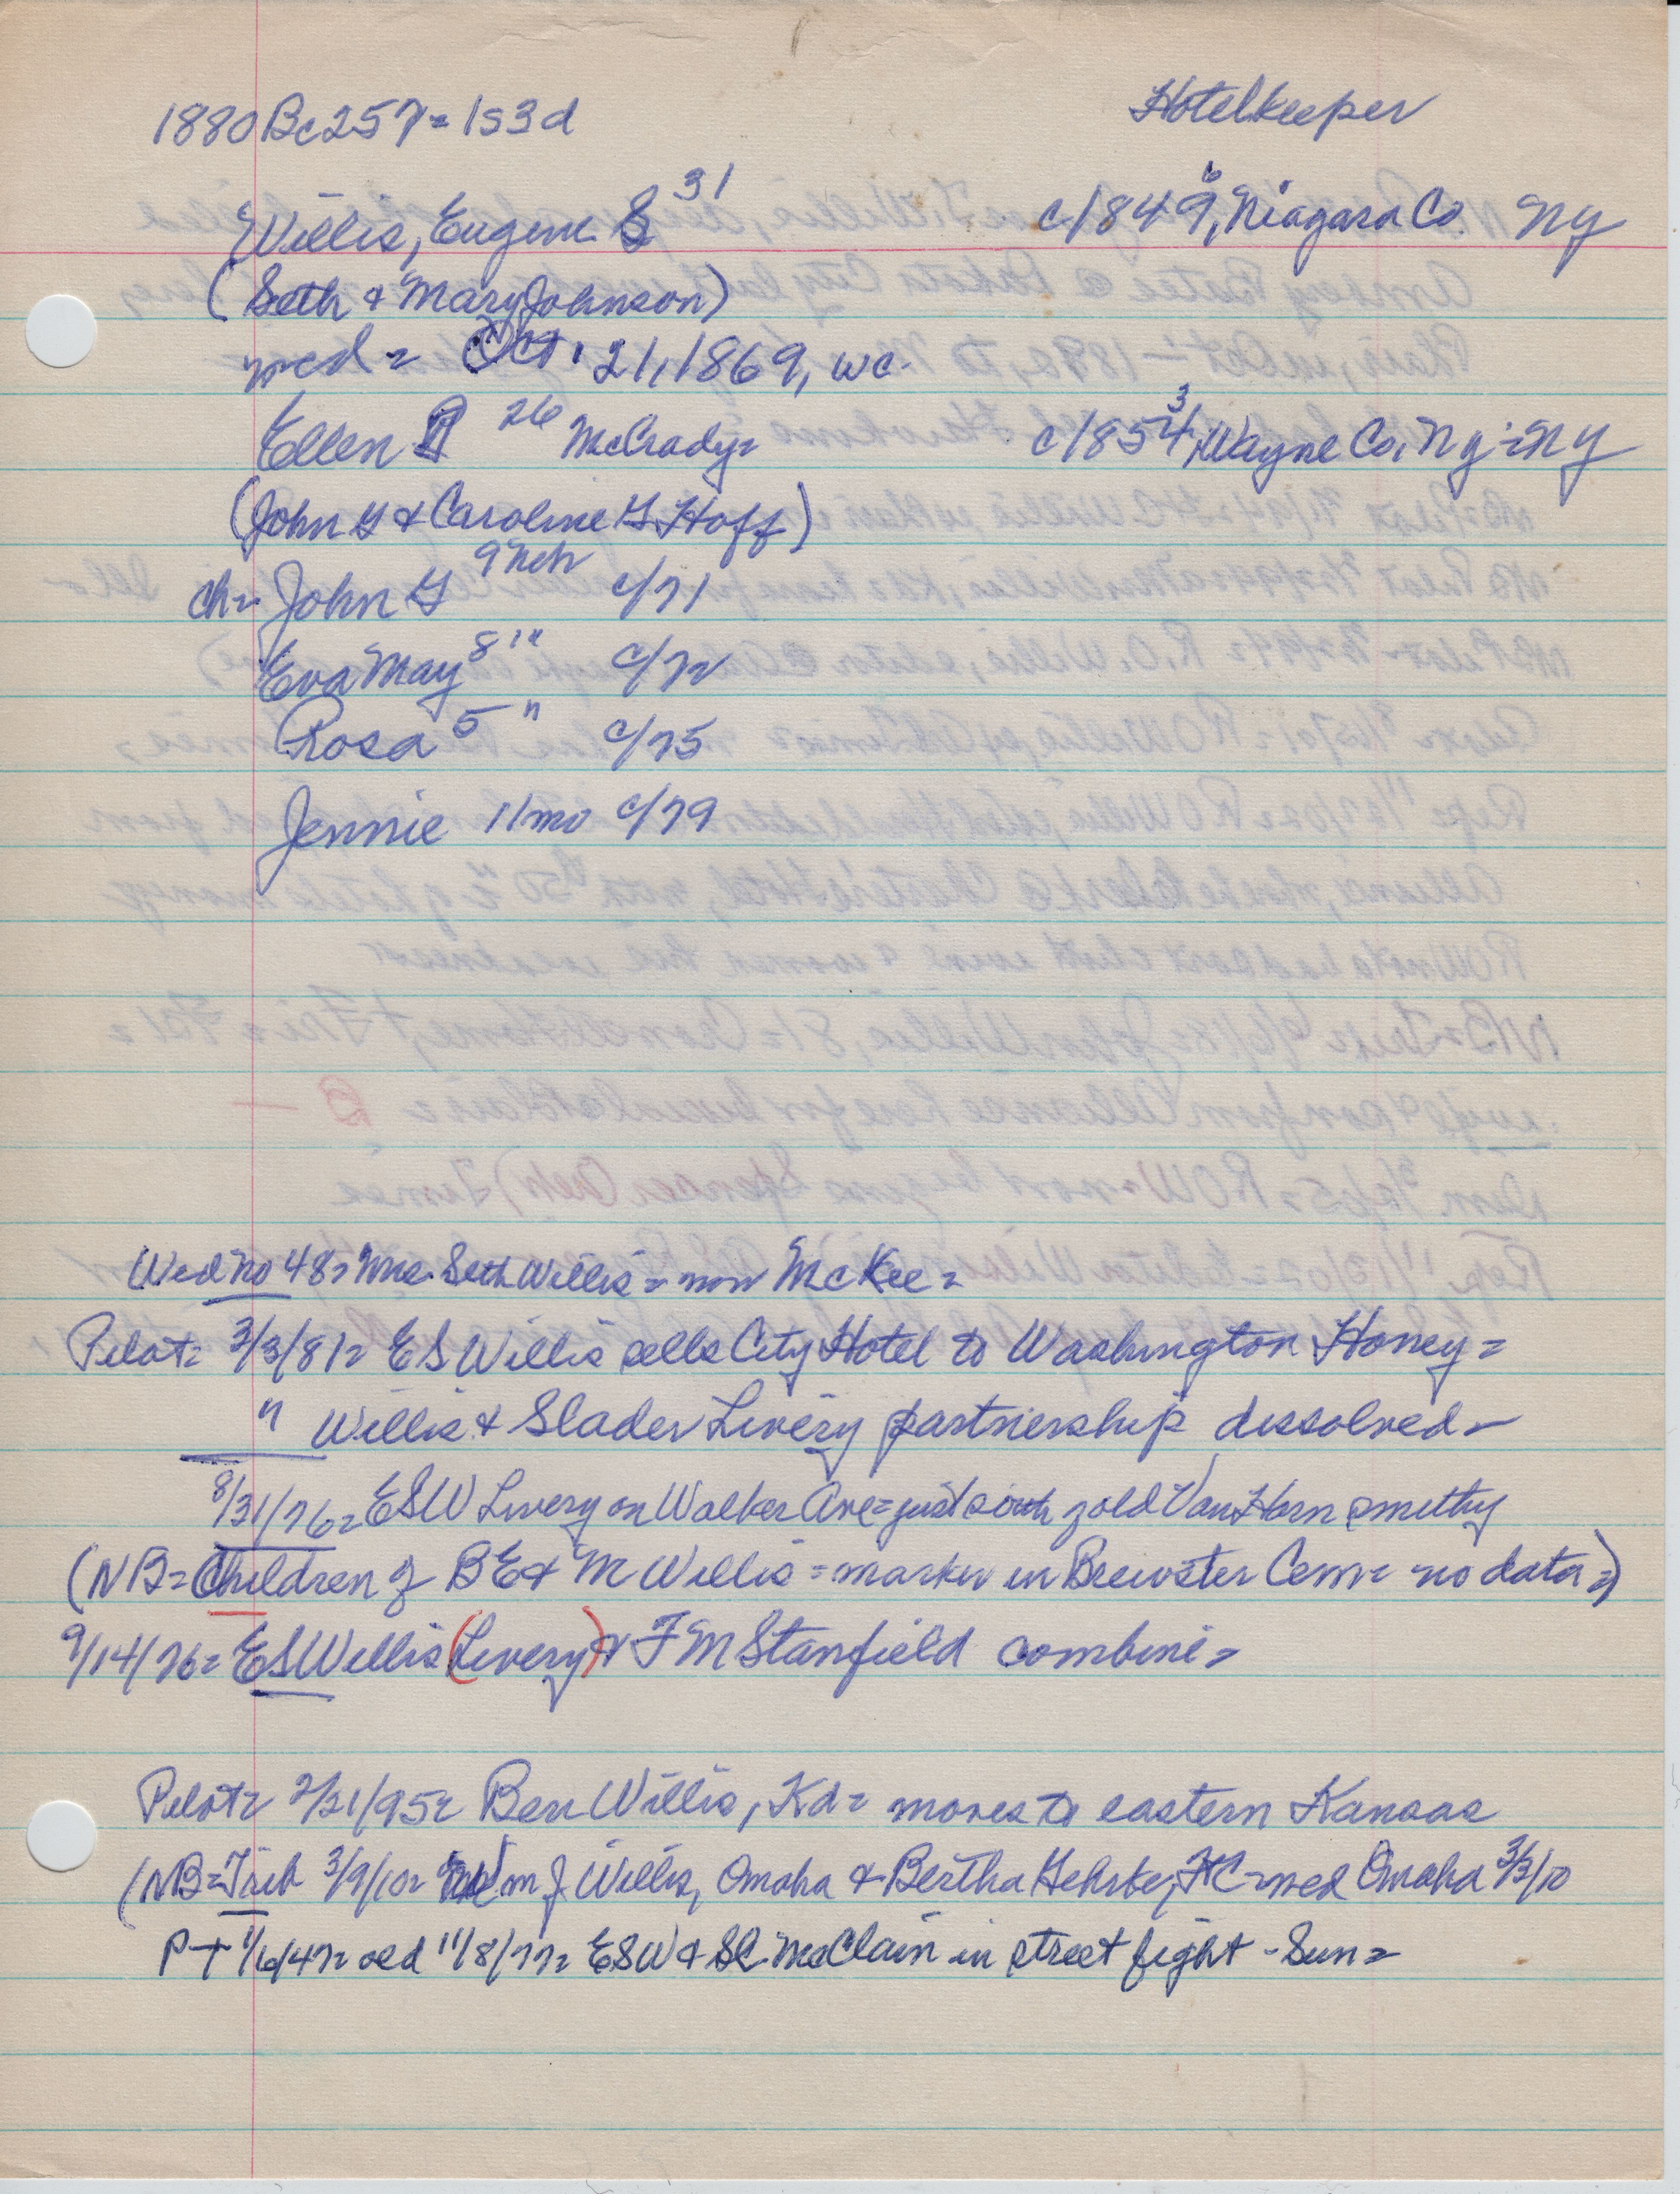 1880 Bc257 = 153d Hotelkeeper
Willis, Eugene S 31 c/1849, Niagara Co. NY
(Seth & Mary Johnson)
med = Oct. 21, 1869, WC.
Ellen 26 McCrady= c/1854 3, Wayne Co, Ny = NY
(John G & Caroline G Hoff)
ch= John G 9 Neb c/71
Eva May 8 " c/72
Rosa 5 " c/75
Jennie 11mo c/79
Wed no 48= Mrs. Seth Willis = now McKee =
Pilot= 3/3/81= E S Willis sells City Hotel to Washington Honey =
" Willis & Slader Livery partnership dissolved -
8/31/76= ESW Livery on Walker Ave = just south of old Van Horn smithy
(NB= Children of B E & M Willis = marker in Brewster Cem= no data =)
9/14/76= E S Willis (Livery) & F M Stanfield combine =
Pilot= 2/21/95= Ben Willis, Kd= moves to eastern Kansas
(NB= Trib 3/9/10= Wm J Willis, Omaha & Bertha FC = med Omaha 3/3/10
P+T 1/6/47= old 11/8/77= ESW & SC McClain in street fight - Sun =